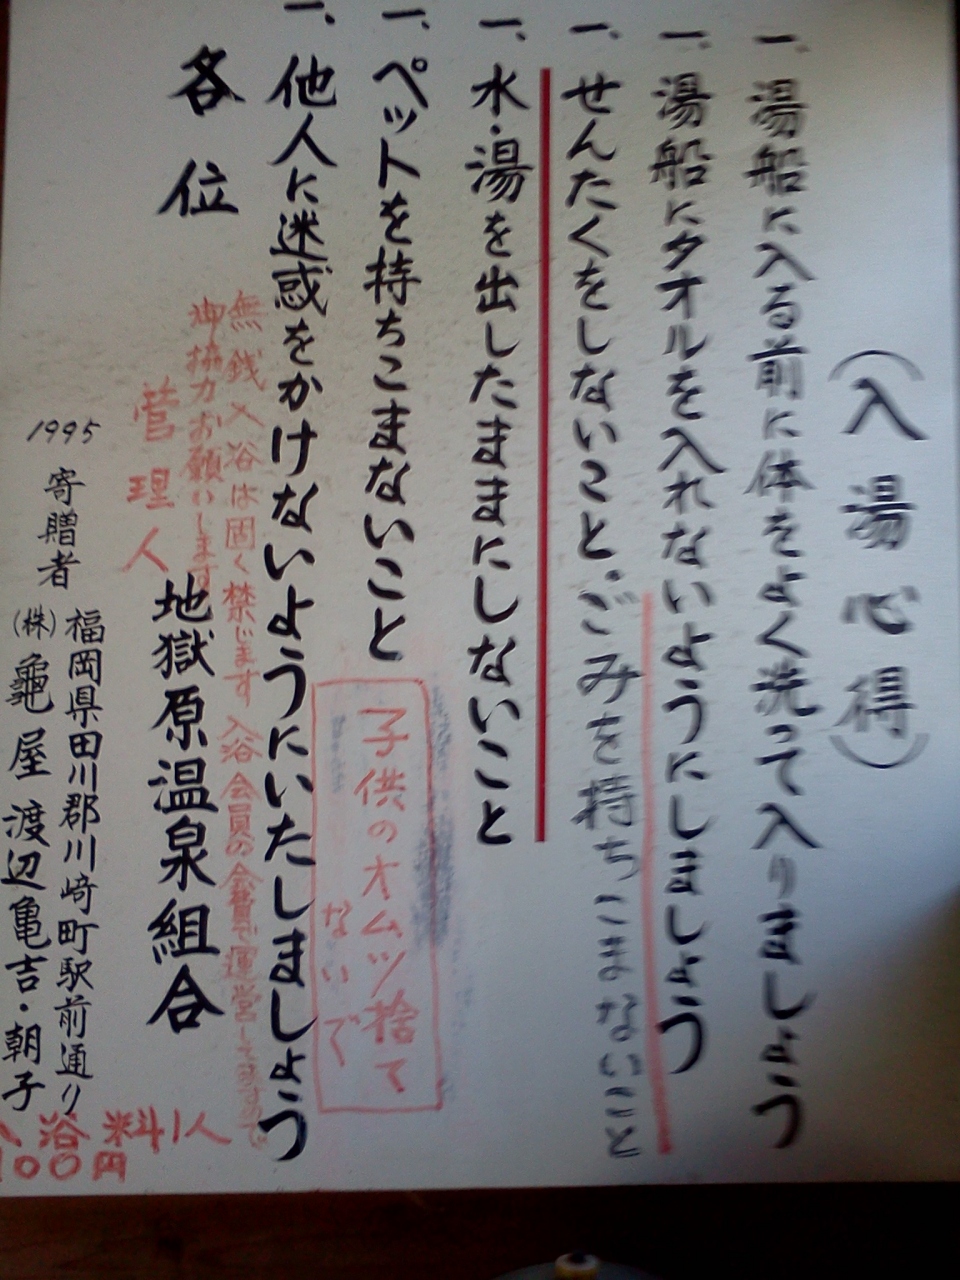 （入湯心得）
一、湯船に入る前に体をよく洗って入りましょう
一、湯船にタオルを入れないようにしましょう
一、せんたくをしないこと。ごみを持ちこまないこと
一、水・湯を出したままにしないこと
一、ペットを持ちこまないこと
子供のオムツ捨て
ないで
一、他人に迷惑をかけないようにいたしましょう
各位
無銭入浴は固く禁じます 入浴会員の会費で運営してますので
御協力お願いします
管理人
地獄原温泉組合
1995
寄贈者
福岡県田川郡川﨑町駅前通り
(株)龜屋 渡辺亀吉・朝子
入浴料1人
100円